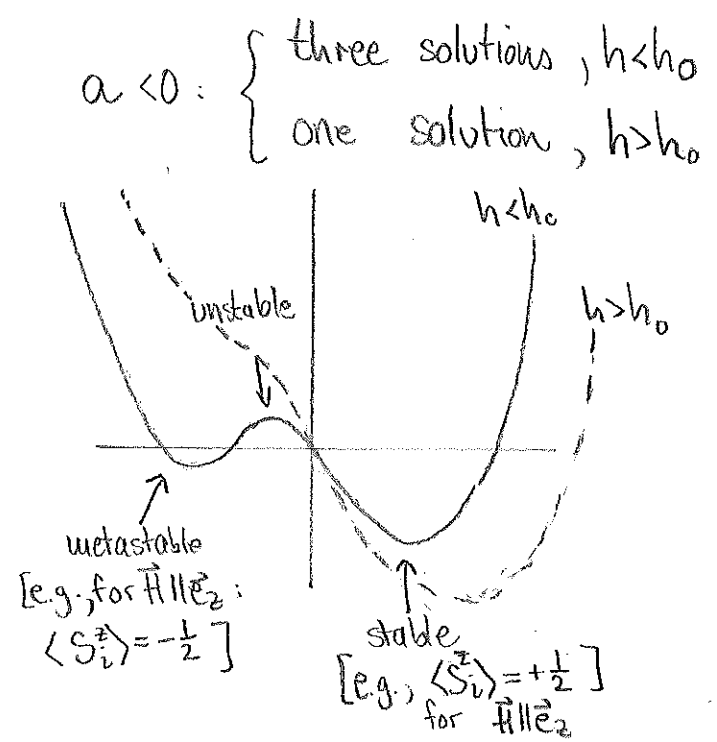 a < 0 : { three solutions , h < h₀
one solution , h > h₀
h < h₀
unstable
h > h₀
metastable
[e.g., for H⃗ ∥ e⃗_z :
⟨S_i^z⟩ = -1/2 ]
stable
[e.g., ⟨S_i^z⟩ = +1/2 ]
for H⃗ ∥ e⃗_z